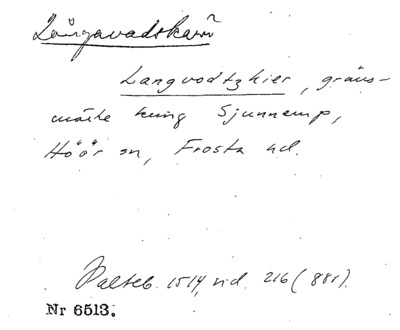 Långavadskärr
Langvodtzkier, gräns-
märke kring Sjunnerup,
Höör sn, Frosta hd.
Palteb. 1514, sid. 216 (88r).
Nr 6513.